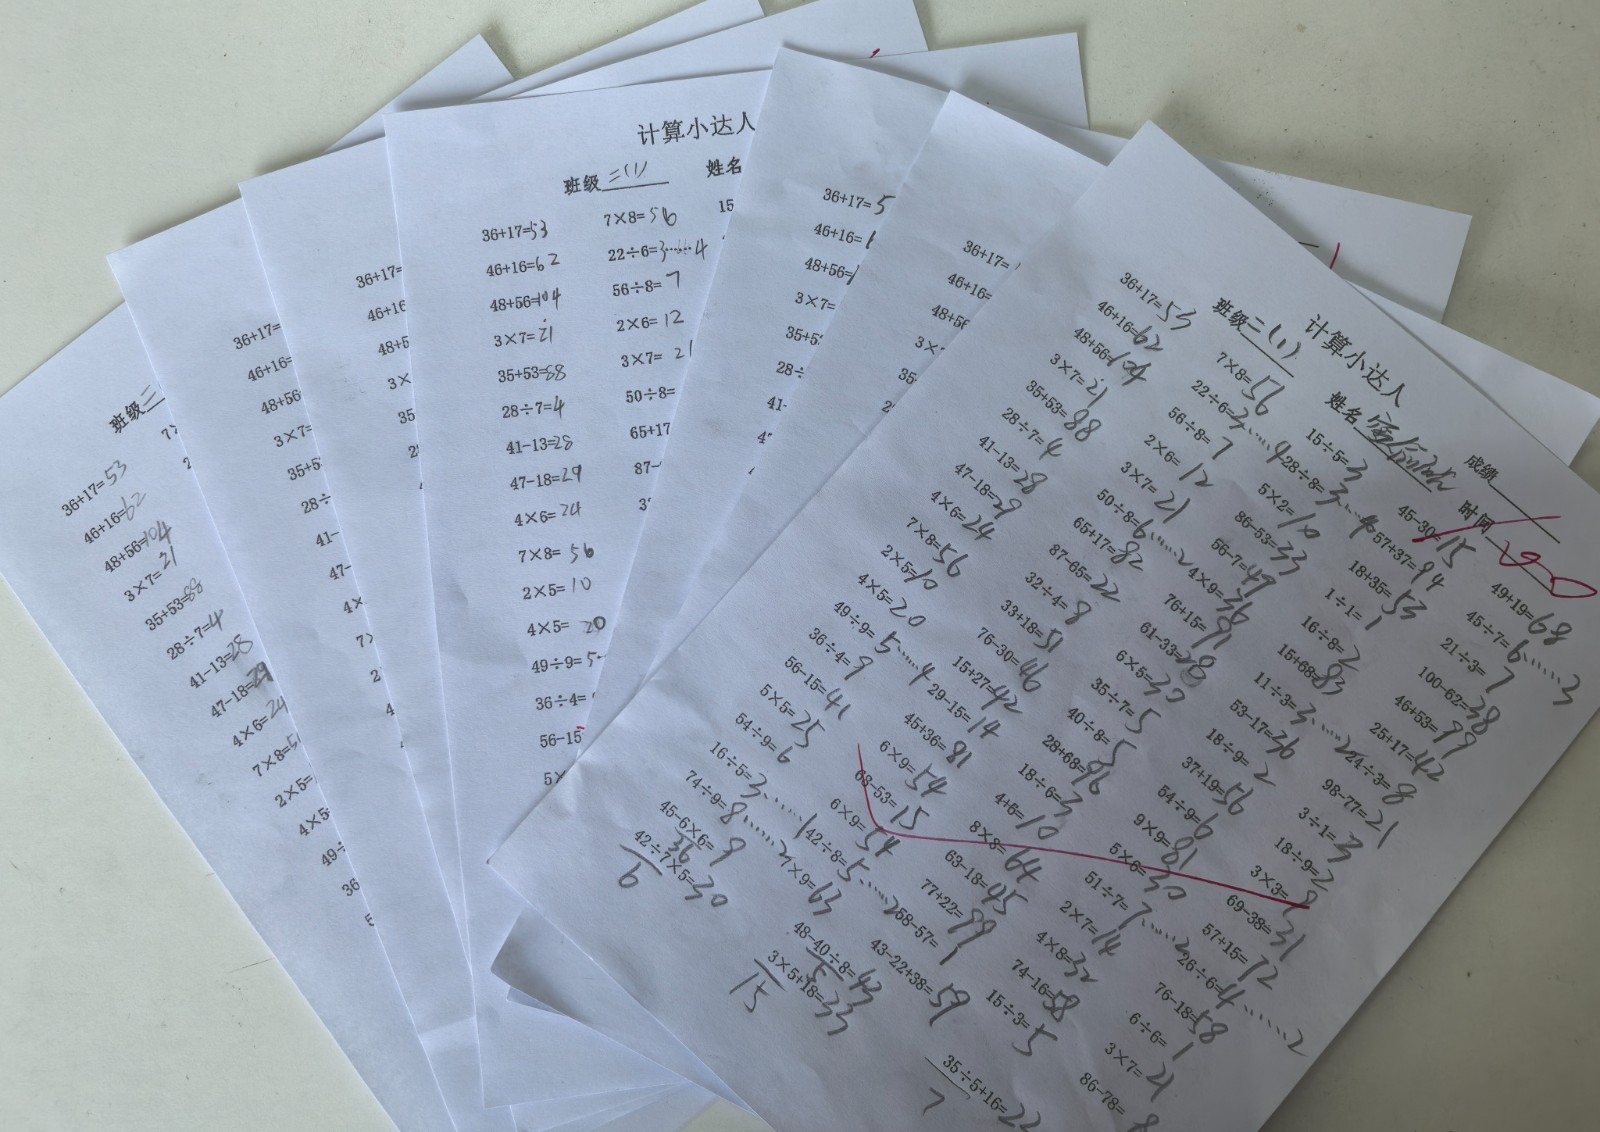 班级三
36+17=53
46+16=62
48+56=104
3×7=21
35+53=88
28÷7=4
41-13=28
47-18=29
4×6=24
7×8=5
2×5=
4×5
49÷
36
36+17=
46+16=
48+56
3×7=
35+5
28÷
41-
47-
4×
36+17=
46+16
48+5
3×
35
计算小达人
班级 三(1) 姓名
36+17=53 7×8=56 15
46+16=62 22÷6=3……4
48+56=104 56÷8=7
3×7=21 2×6=12
35+53=88 3×7=21
28÷7=4 50÷8=
41-13=28 65+17
47-18=29 87-
4×6=24
7×8=56
2×5=10
4×5=20
49÷9=5
36÷4=
56-15
5×
36+17=5
46+16=
48+56=
3×7=
35+5
28÷
41-
36+17=
46+16=
48+56
3×
35
计算小达人
班级 三(1) 姓名 成绩 时间
36+17=53
46+16=62
48+56=104
3×7=21
35+53=88
28÷7=4
41-13=28
47-18=29
4×6=24
7×8=56
2×5=10
4×5=20
49÷9=5……4
36÷4=9
56-15=41
5×5=25
54÷9=6
16÷5=3……1
74÷9=8……2
45-6×6=9
36
42÷7×5=30
6
7×8=56
22÷6=3……4
56÷8=7
2×6=12
3×7=21
50÷8=6……2
65+17=82
87-65=22
32÷4=8
33+18=51
76-30=46
15+27=42
29-15=14
45+36=81
6×9=54
68-53=15
6×9=54
42÷8=5……2
7×9=63
48-40÷8=43
5
3×5+18=33
15
15÷5=3
28÷8=3……4
5×2=10
86-53=33
56-7=49
4×9=36
76+15=91
61-33=28
6×5=30
35÷7=5
40÷8=5
28+68=96
18÷6=3
4+6=10
8×8=64
63-18=45
77+22=99
58-57=1
43-22+38=59
45-30=15
57+37=94
18+35=53
1÷1=1
16÷8=2
15+68=83
11÷3=3……2
53-17=36
18÷9=2
37+19=56
54÷9=6
9×9=81
5×6=30
51÷7=7……2
2×7=14
4×8=32
74-16=58
15÷3=5
35÷5+16=22
7
49+19=68
45÷7=6……3
21÷3=7
100-62=38
46+53=99
25+17=42
24÷3=8
98-77=21
3÷1=3
18÷9=2
3×3=9
69-38=31
57+15=72
26÷6=4……2
76-18=58
6÷6=1
3×7=21
86-78=8